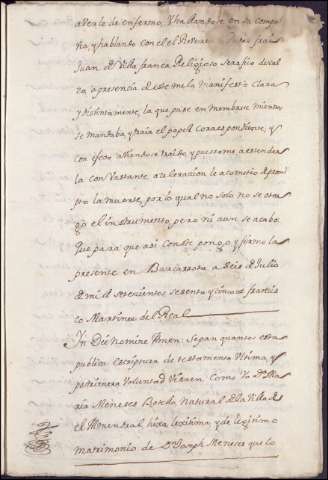 averle de enfermo, y hallandose en su compa
ñia, y hablando con el el Fray
Juan de Villafranca Religioso Serafico descal
zo a presencia de este me la manifesto Clara
y distintamente, la que pase en membrase mientras
se mandaba y traia el papel Correspondiente, y
con efecto hallandose traido y puestome a extender
la con bastante aceleracion le acometio de prom
pto la muerte, por lo qual no solo no se otor
go el instrumento, pero ni aun se acabo.
Que para que asi Conste pongo y firmo la
presente en Barcarrota a de Julio
de mil setecientos sesenta y cinco
Martinez del Real
In Dei Nomine Amen. Sepan quantos esta
publica escriptura de testamento ultima, y
postrimera voluntad vieren, Como Yo Da. Ma
ria Meneses Natural de la Villa de
el Almendral, hixa lexitima, y de legitimo
matrimonio de Dn. Joseph Meneses que lo